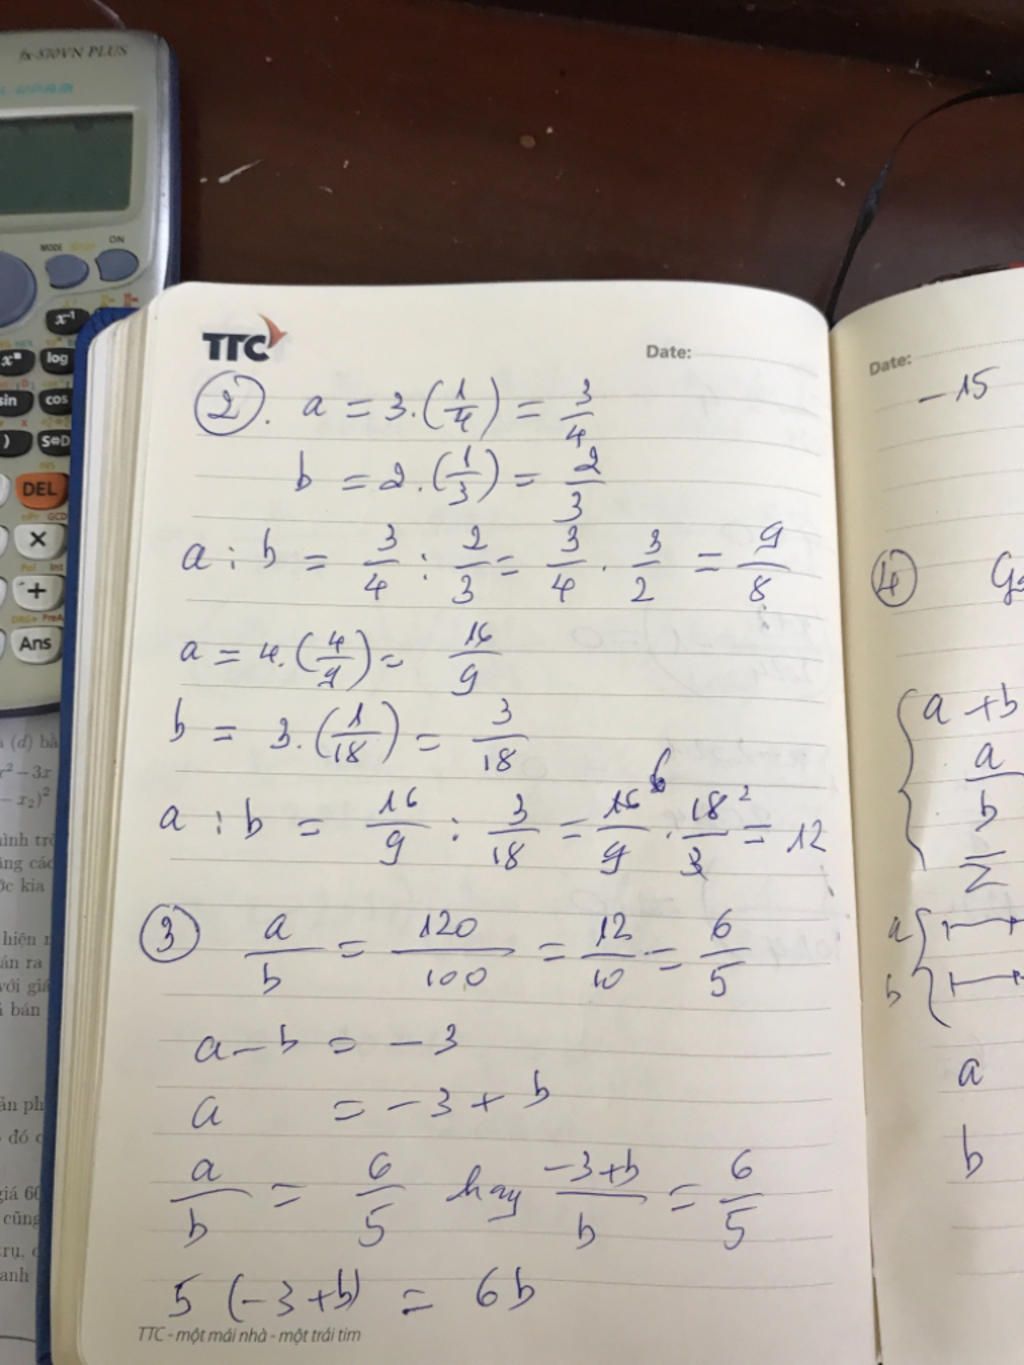 fx-570VN PLUS
MODE SETUP ON
x⁻¹
log
sin cos
) S⇔D
DEL
GCD
×
Pol Int
+
Ans
(d) bà
x² - 3x
- x₂)²
ình trò
ăng các
ớc kia
hiện
án ra
với giá
bán
ản ph
đó c
giá 60
cũng
trụ,
anh
TTC
Date:
② . a = 3.(1/4) = 3/4
b = 2.(1/3) = 2/3
a : b = 3/4 : 2/3 = 3/4 . 3/2 = 9/8
a = 4.(4/9) = 16/9
b = 3.(1/18) = 3/18
6
a : b = 16/9 : 3/18 = 16/9 . 18²/3 = 12
③ a/b = 120/100 = 12/10 = 6/5
a - b = -3
a = -3 + b
a/b = 6/5 hay (-3+b)/b = 6/5
5 (-3 + b) = 6b
TTC - một mái nhà - một trái tim
Date:
-15
④
a + b
a/b
a
b
a
b